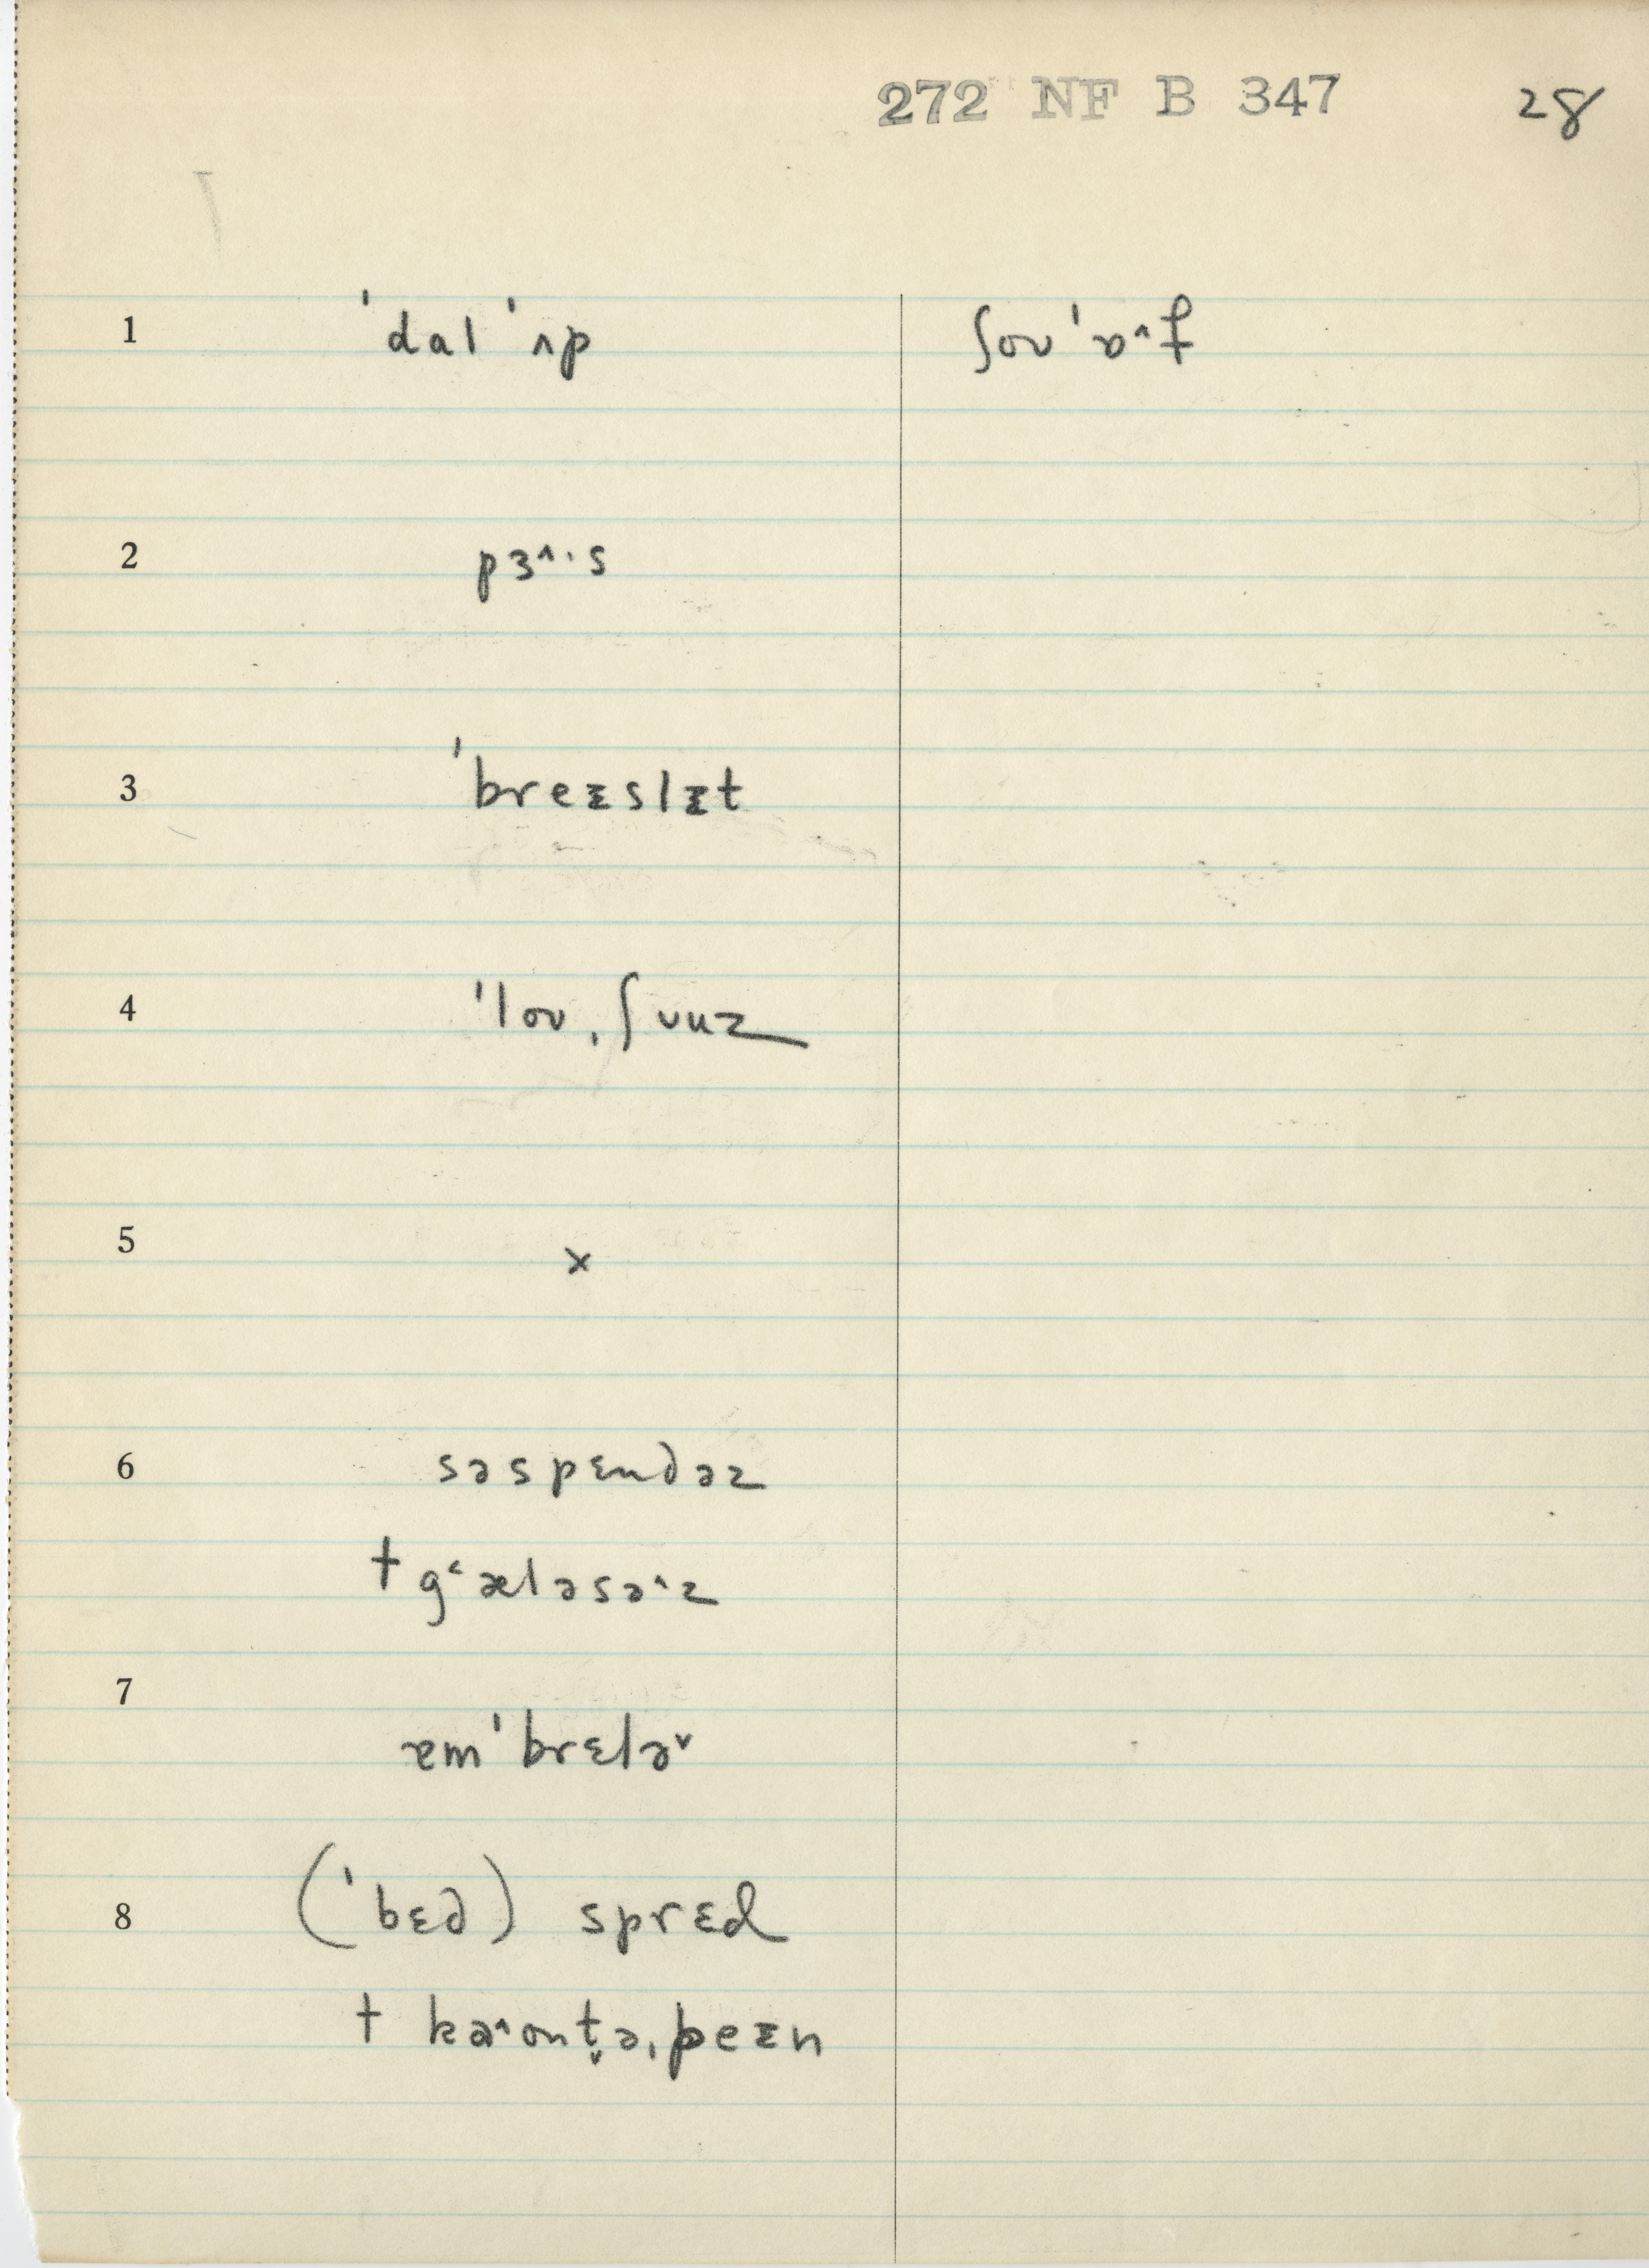 272 NF B 347 28
1 ˈdalˈʌp ʃoʊˈɒ^f
2 pɜ^·s
3 ˈbreᵻslᵻt
4 ˈloʊˌʃʊuz
5 x
6 səspɛndəz
† g˂æləsə^z
7 ɐmˈbrɛlə˅
8 (ˈbɛd) sprɛd
† ka^ʊnt̬əˌpeᵻn